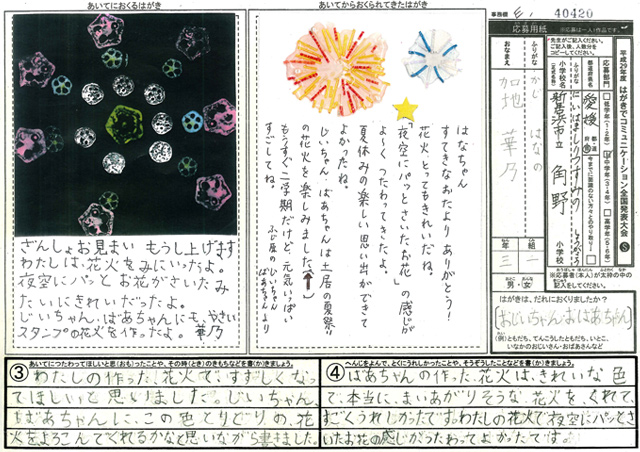 あいてにおくるはがき
ざんしょお見まい もうし上げます
わたしは、花火をみにいったよ。
夜空にパッとお花がさいたみ
たいにきれいだったよ。
じいちゃん、ばあちゃんにも、やさい
スタンプの花火を作ったよ。 華乃
あいてからおくられてきたはがき
はなちゃん
すてきなおたよりありがとう！
花火とってもきれいだね。
「夜空にパッとさいたお花」の感じが
よ～くつたわってきたよ。
夏休みの楽しい思い出ができて
よかったね。
じいちゃん、ばあちゃんは土居の夏祭り
の花火を楽しみました。
もうすぐ二学期だけど、元気いっぱい
すごしてね。
ふじ原のじいちゃん
ばあちゃんより
事務欄
40420
応募用紙
※応募は一人1作品です。
平成29年度 はがきでコミュニケーション全国発表大会
S
先生がご記入ください。
ご記入後、人数分を
コピーしてください。
応募部門
低学年(1・2年)
中学年(3・4年)
高学年(5・6年)
都道府県名
愛媛
ふりがな
小学校名
(正式名称)
新居浜市立 角野
小学校
ふりがな
かじ はなの
おなまえ
加地 華乃
年
三
組
一
男・女
※応募者(本人)が太枠の中の
記入をしてください。
はがきは、だれにおくりましたか？
おじいちゃん・おばあちゃん
(例)ともだち、てんこうしたともだち、いとこ、
いなかのおじいさん・おばあさんなど
あいてにつたわってほしいと思(おも)ったことや、その時(とき)のきもちなどを書(か)きましょう。
③
わたしの作った、花火で、すずしくなっ
てほしいと思いました。じいちゃん、
ばあちゃんに、この色とりどりの、花
火をよろこんでくれるかなと思いながら書きました。
へんじをよんで、とくにうれしかったことや、そうぞうしたことなどを書(か)きましょう。
④
ばあちゃんの作った、花火は、きれいな色
で、本当に、まいあがりそうな、花火を、くれて、
すごくうれしかったです。わたしの花火で夜空にパッとさ
いたお花の感じがつたわってよかったです。